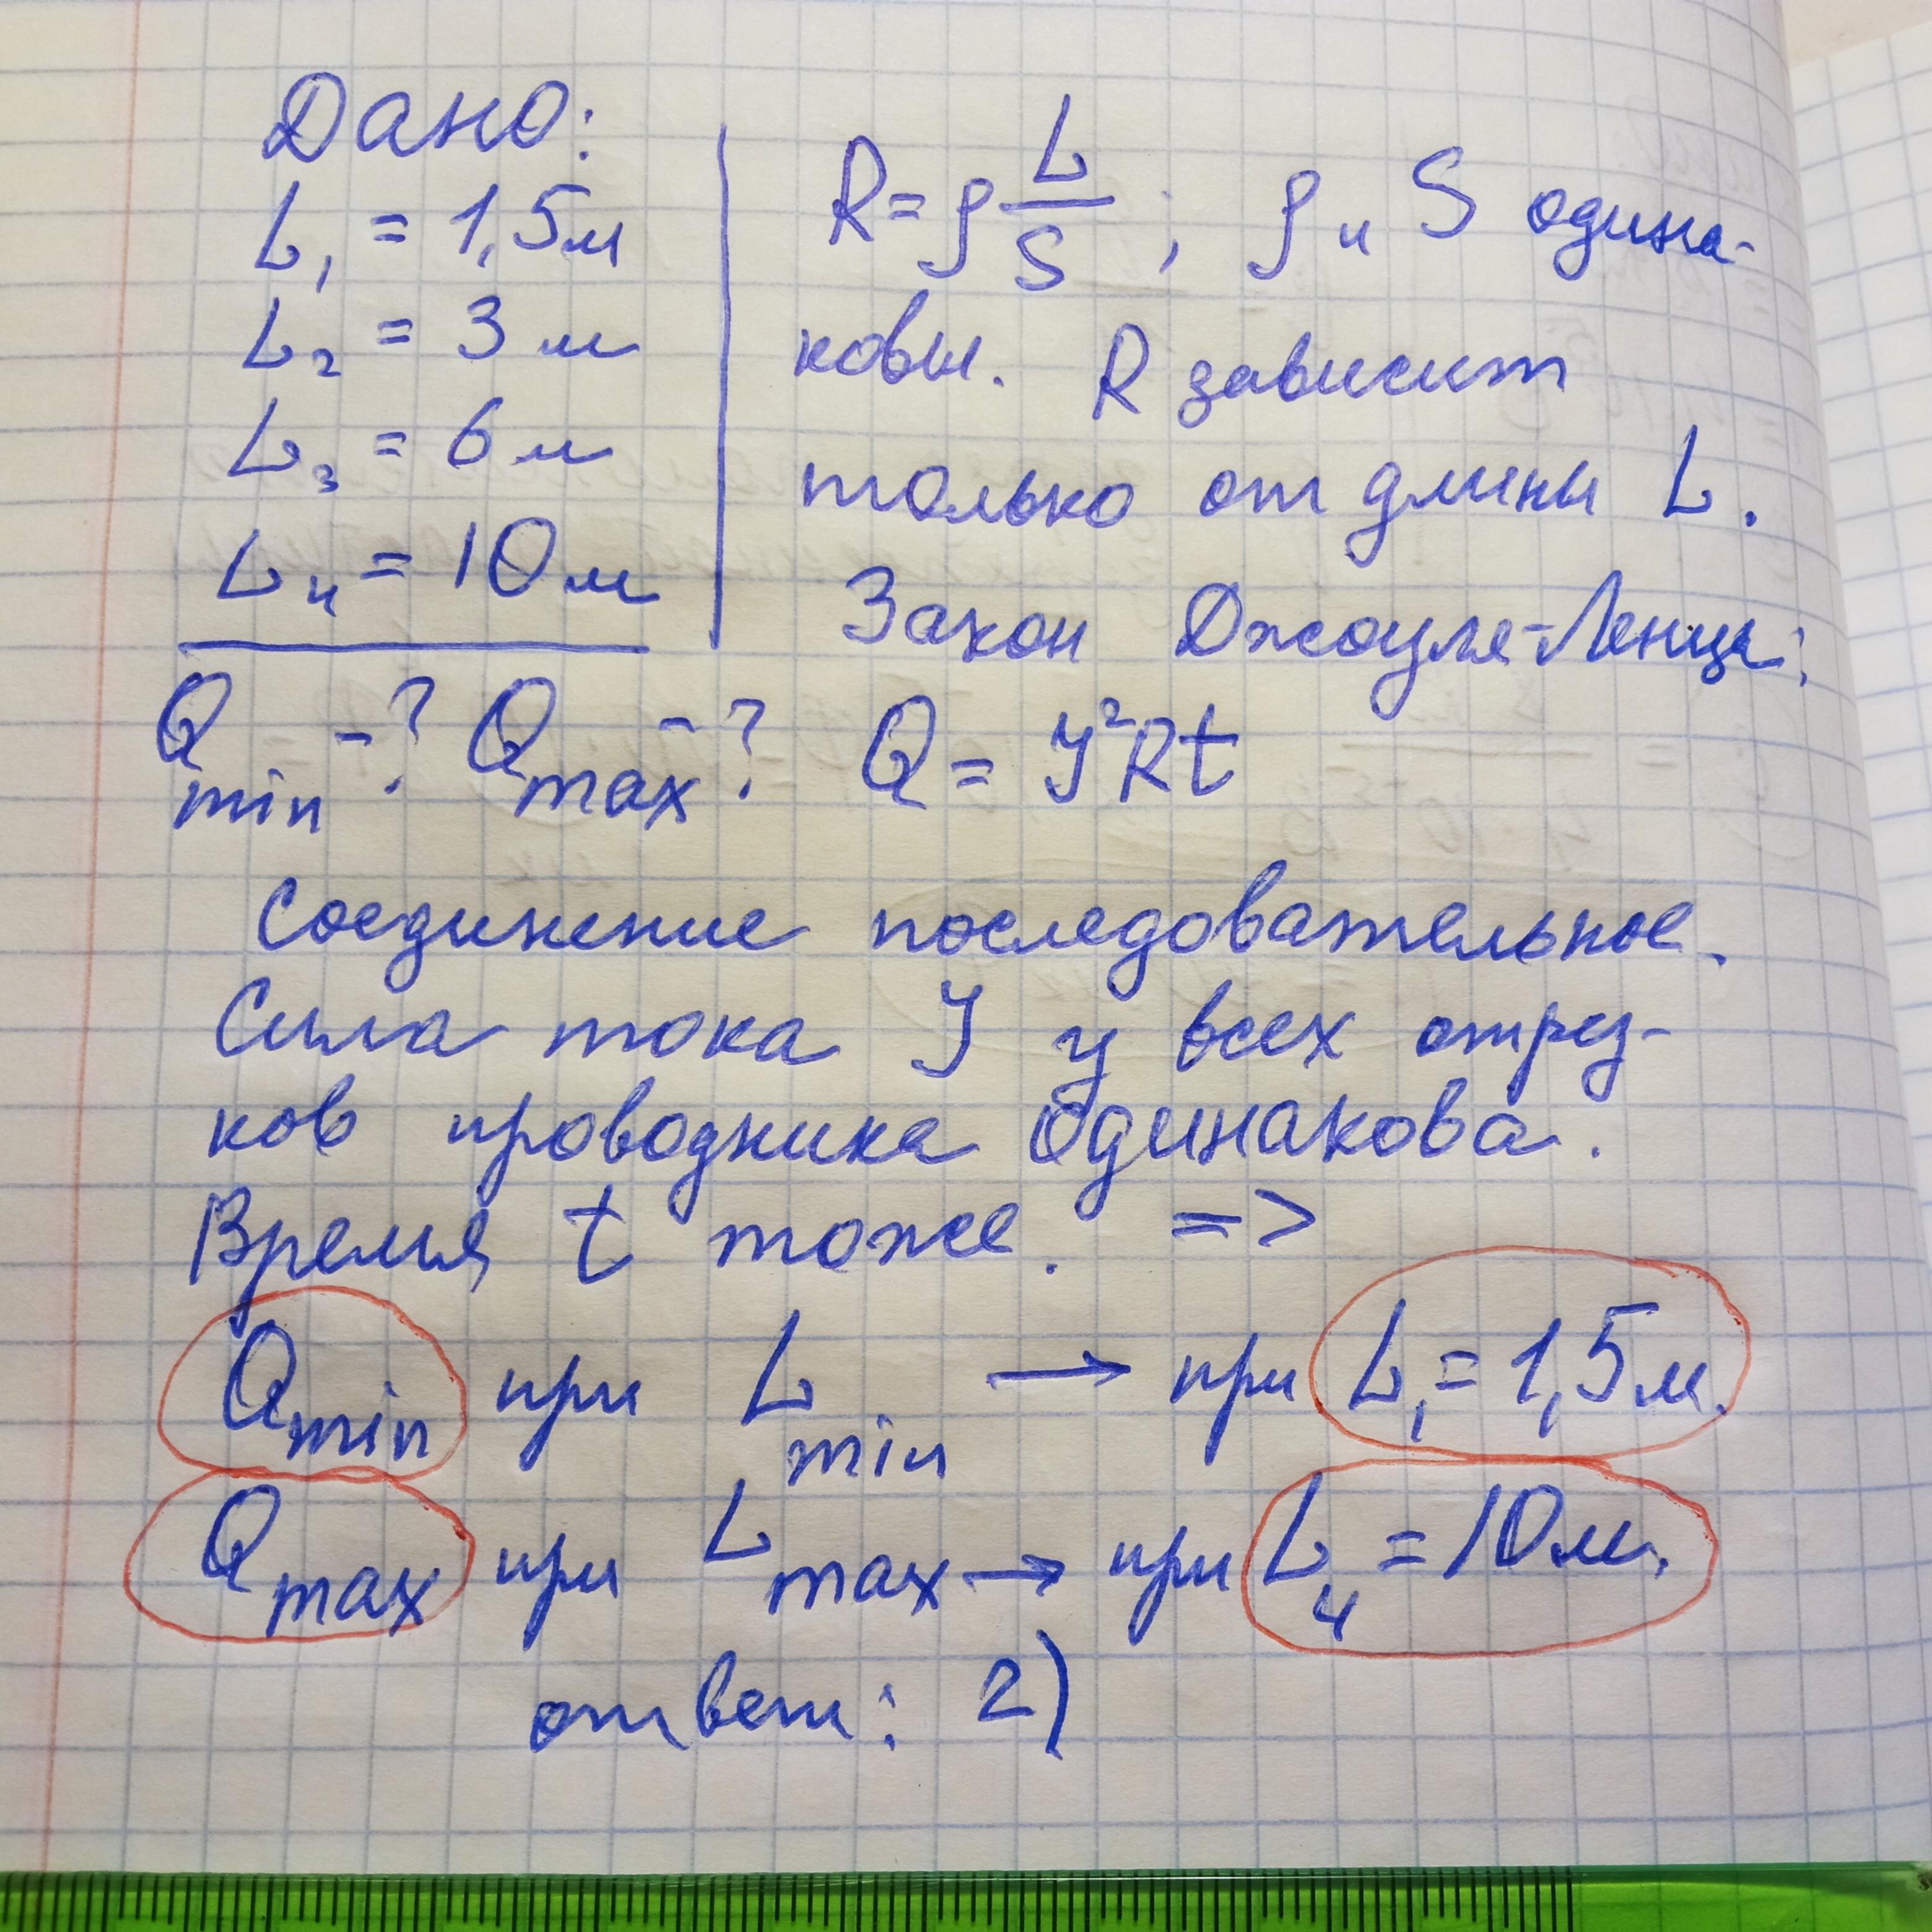 Дано:
L₁ = 1,5 м
L₂ = 3 м
L₃ = 6 м
L₄ = 10 м
Q min -? Q max -?
R = ρ L/S ; ρ и S одина-
ковы. R зависит
только от длины L.
Закон Джоуля-Ленца:
Q = I²Rt
Соединение последовательное.
Сила тока I у всех отрез-
ков проводника одинакова.
Время t тоже. =>
Q min при L min → при L₁ = 1,5 м.
Q max при L max → при L₄ = 10 м.
ответ: 2)